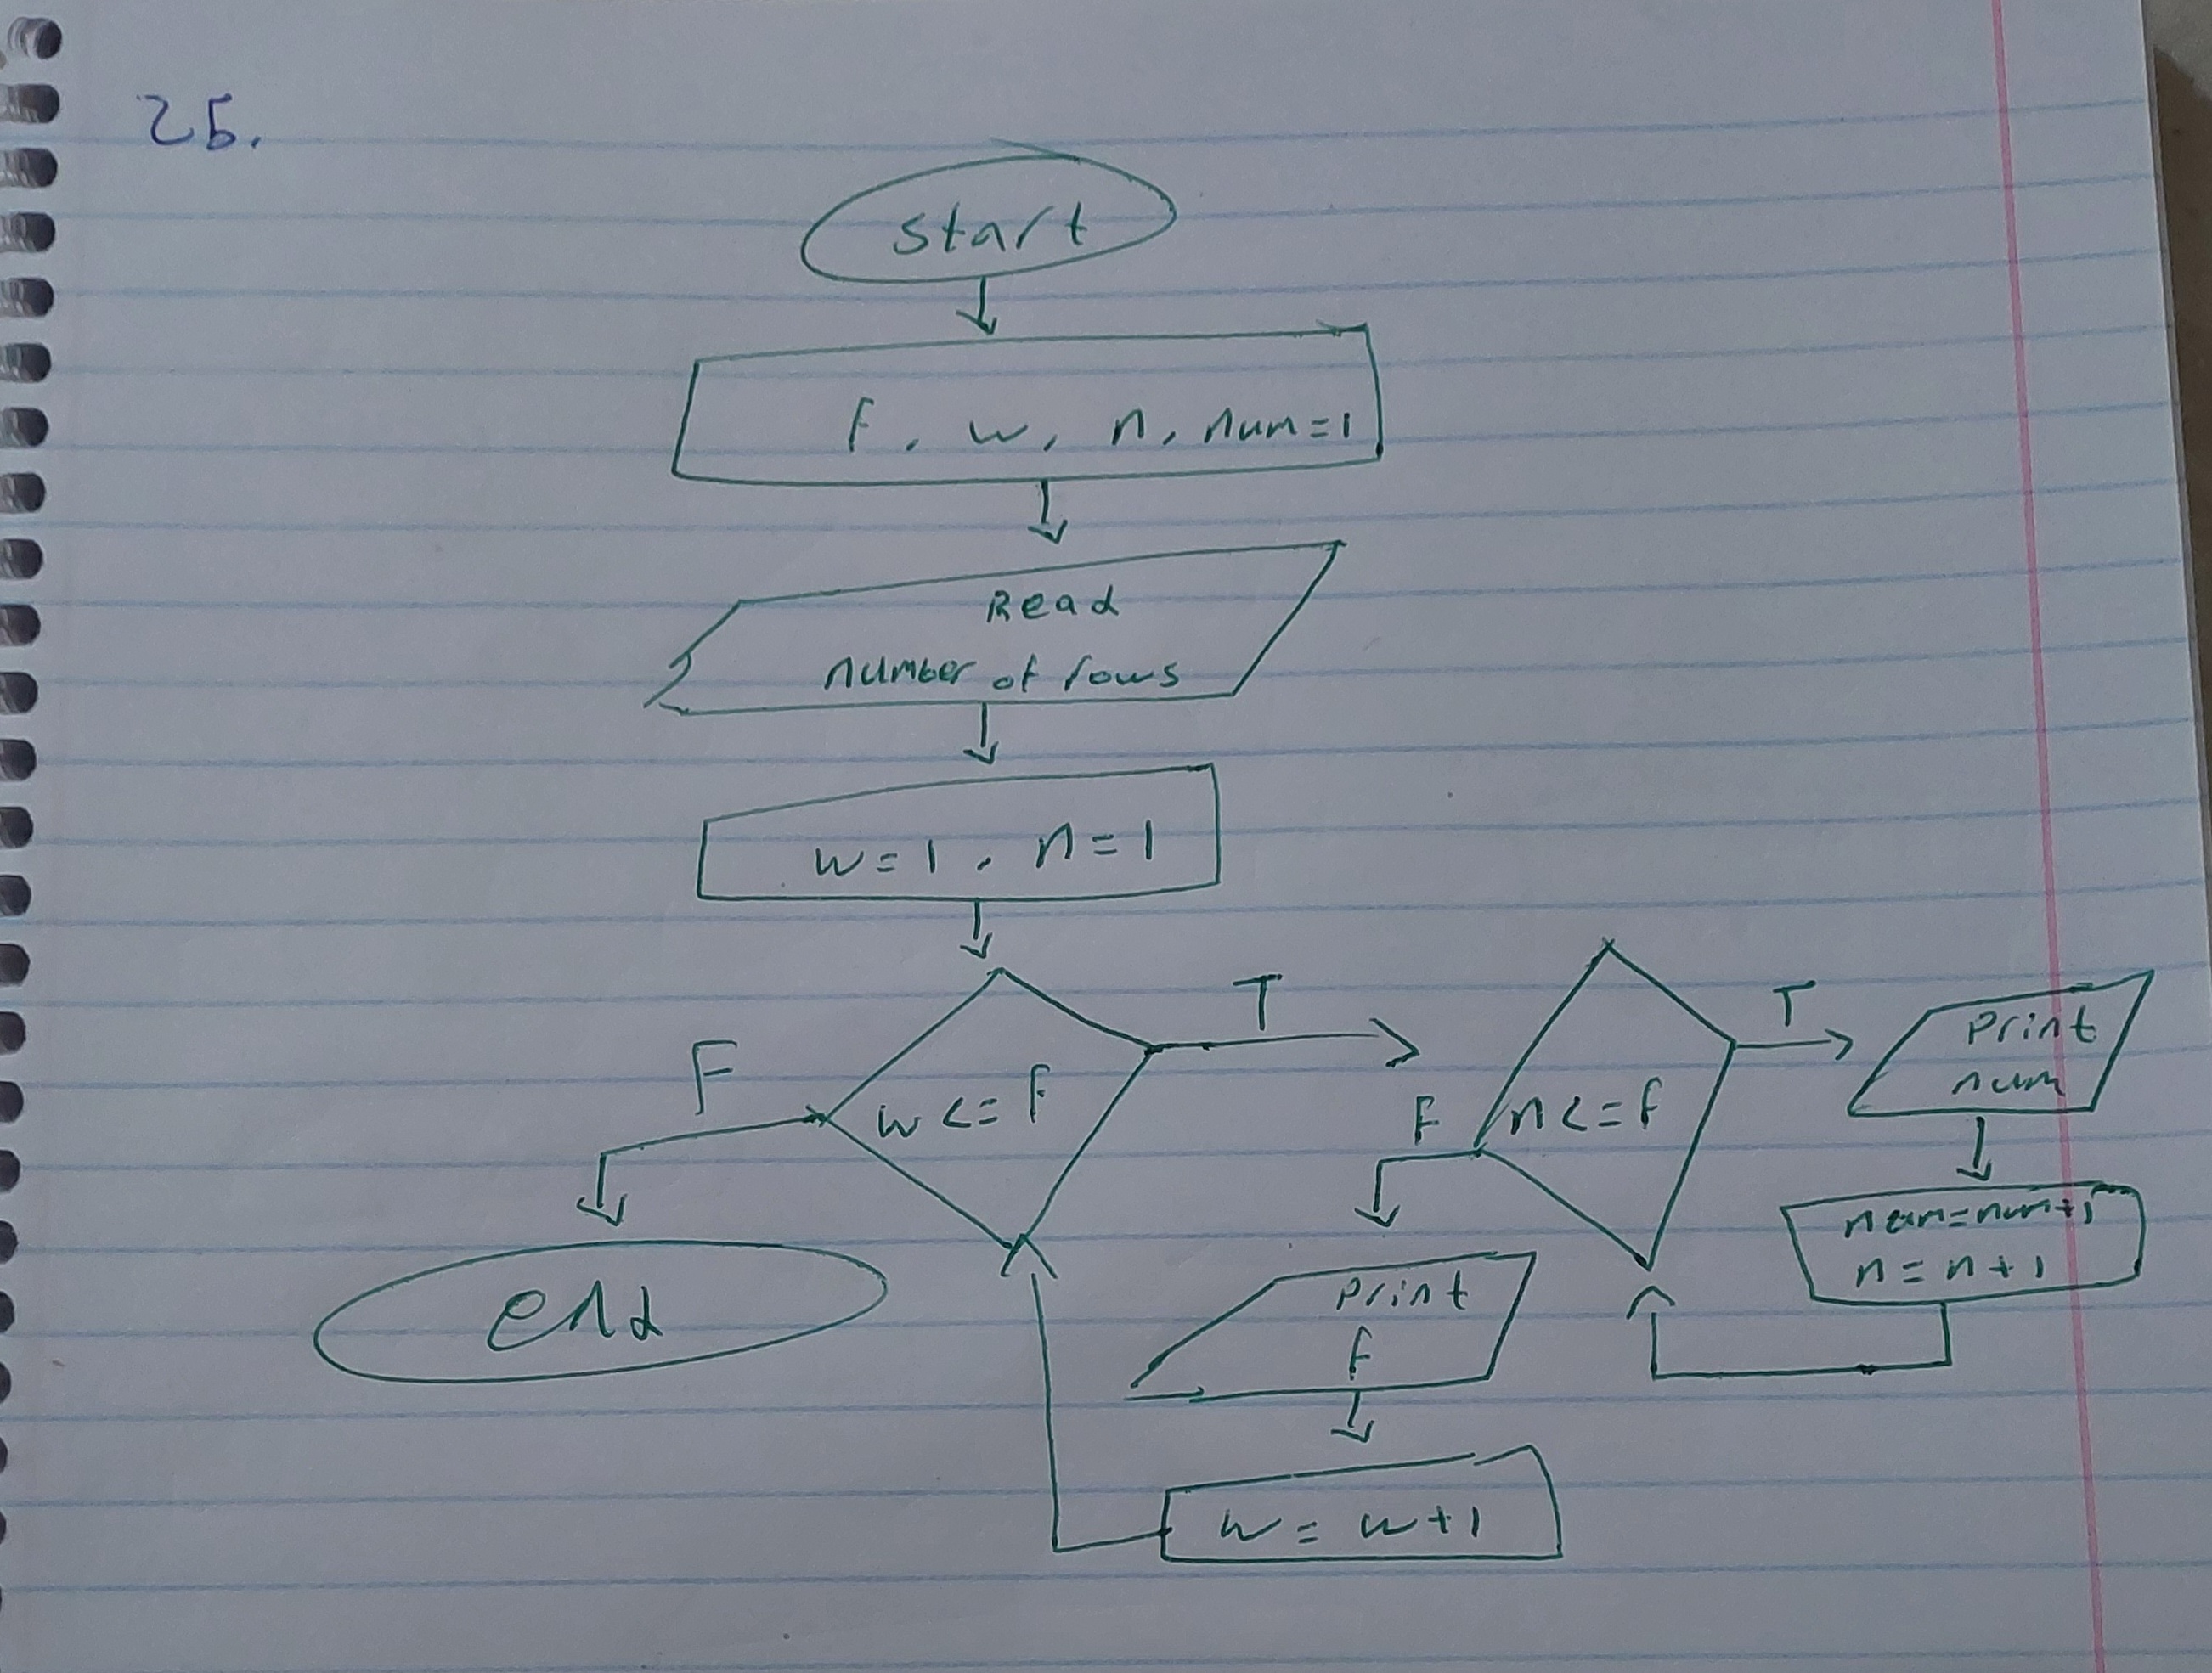 25.
start
f, w, n, num=1
Read
number of rows
w=1, n=1
T
T
F
w<=f
F
n<=f
print
num
num=num+1
n=n+1
end
print
f
w=w+1